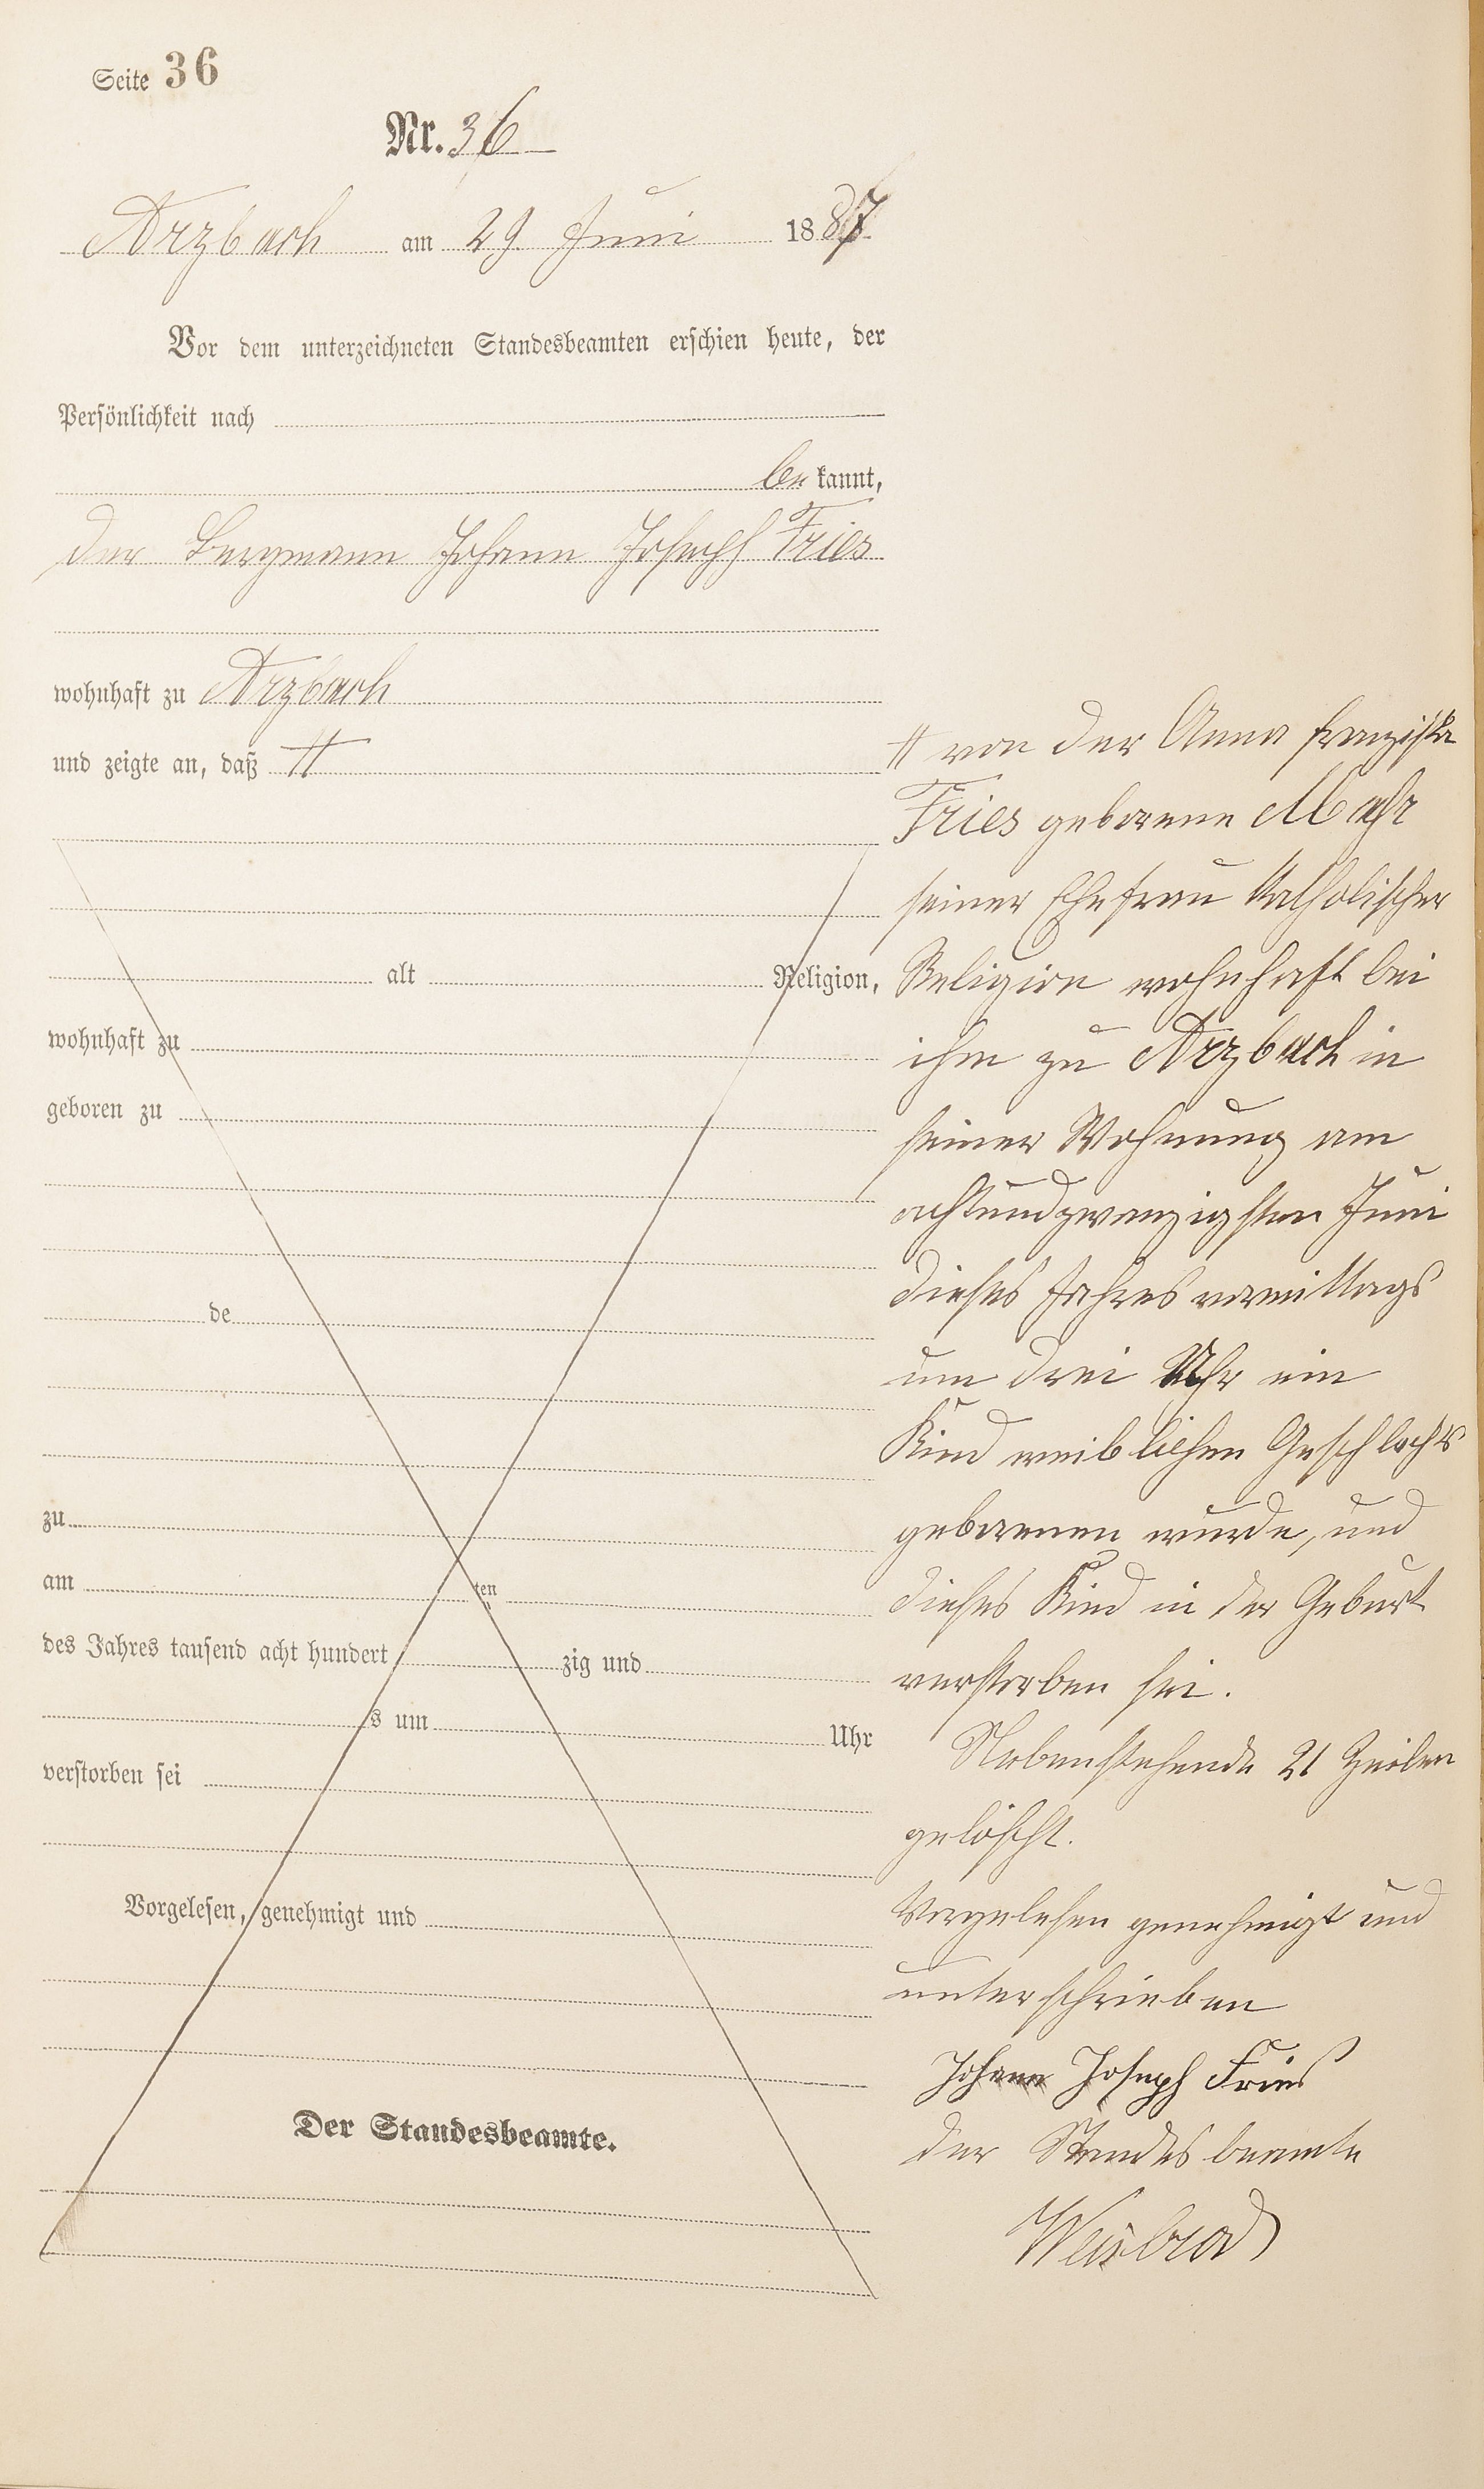 Seite 36
Nr. 36
Arzbach am 29 Juni 1887
Vor dem unterzeichneten Standesbeamten erschien heute, der
Persönlichkeit nach
be kannt,
der Bergmann Johann Joseph Fries
wohnhaft zu Arzbach
und zeigte an, daß #
# von der Anna Franziska
Fries geborene Mahr
seiner Ehefrau katholischer
Religion wohnhaft bei
ihm zu Arzbach in
seiner Wohnung am
achtundzwanzigsten Juni
dieses Jahres vormittags
um drei Uhr ein
Kind weiblichen Geschlechts
geborenen wurde, und
dieses Kind in der Geburt
verstorben sei.
Nebenstehende 21 Zeilen
gelöscht.
Vorgelesen genehmigt und
unterschrieben
Johann Joseph Fries
der Standesbeamte
Weisbrod
alt Religion,
wohnhaft zu
geboren zu
de
zu
am ten
des Jahres tausend acht hundert zig und
s um Uhr
verstorben sei
Vorgelesen, genehmigt und
Der Standesbeamte.